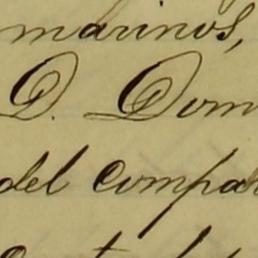 marinos,
D. Dom
del compar